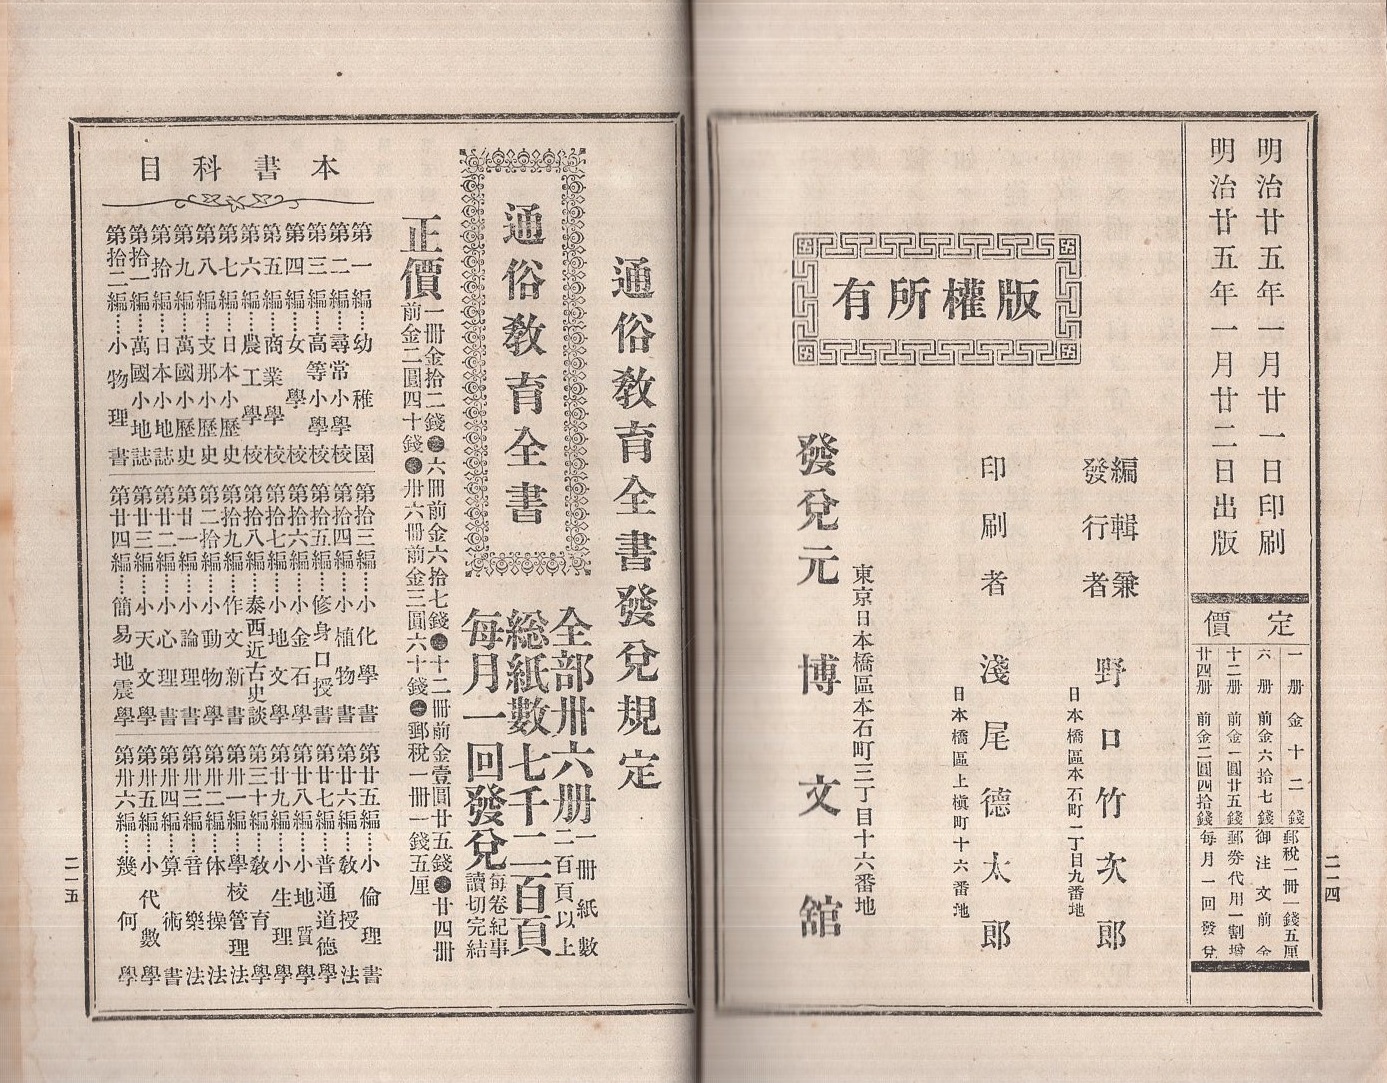 明治廿五年一月廿一日印刷
明治廿五年一月廿二日出版
定價
一册金十二錢
六册前金六拾七錢
十二册前金一圓廿五錢
廿四册前金二圓四拾錢
郵税一册一錢五厘
御注文前金
郵券代用一割增
每月一回發兌
二一四
版權所有
編輯兼
發行者
野口竹次郎
日本橋區本石町二丁目九番地
印刷者
淺尾德太郎
日本橋區上槇町十六番地
東京日本橋區本石町三丁目十六番地
發兌元 博文舘
通俗敎育全書發兌規定
通俗敎育全書
全部卅六册
一册紙數
二百頁以上
総紙數七千二百頁
每月一回發兌
每卷紀事
讀切完結
正價
一册金拾二錢●六冊前金六拾七錢●十二冊前金壹圓廿五錢●廿四冊
前金二圓四十錢●卅六冊前金三圓六十錢●郵税一冊一錢五厘
本書科目
第一編……幼稚園
第二編……尋常小學校
第三編……高等小學校
第四編……女學校
第五編……商業學校
第六編……農工學校
第七編……日本小歷史
第八編……支那小歷史
第九編……萬國小歷史
第拾編……日本小地誌
第拾一編……萬國小地誌
第拾二編……小物理書
第拾三編……小化學書
第拾四編……小植物書
第拾五編……修身口授書
第拾六編……小金石學
第拾七編……小地文學
第拾八編……泰西近古史談
第拾九編……作文新書
第二拾編……小動物學
第廿一編……小論理書
第廿二編……小心理書
第廿三編……小天文學
第廿四編……簡易地震學
第廿五編……小倫理書
第廿六編……敎授法
第廿七編……普通道德學
第廿八編……小地質學
第廿九編……小生理學
第三十編……敎育學
第卅一編……學校管理法
第卅二編……体操法
第卅三編……音樂法
第卅四編……算術書
第卅五編……小代數學
第卅六編……幾何學
二一五